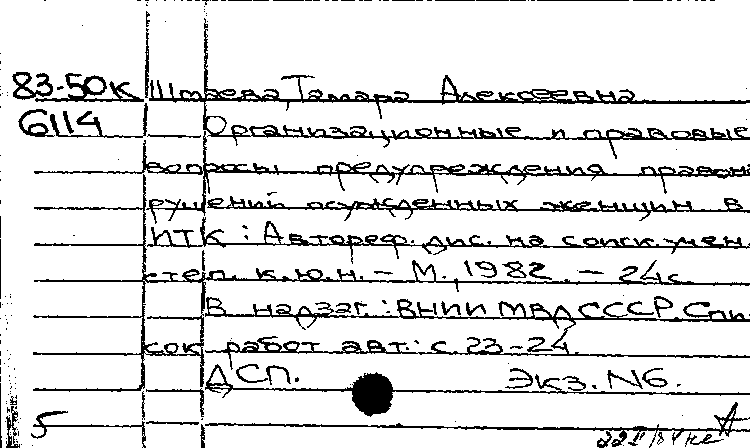 83-50к Штаева, Тамара Алексеевна
6114 Организационные и правовые
вопросы предупреждения правона
рушений осужденных женщин в
ИТК : Автореф. дис. на соиск. учен.
степ. к.ю.н. – М., 1982. – 24с.
В надзаг.: ВНИИ МВД СССР. Спи-
сок работ авт.: с. 23-24.
ДСП. Экз. N6.
5